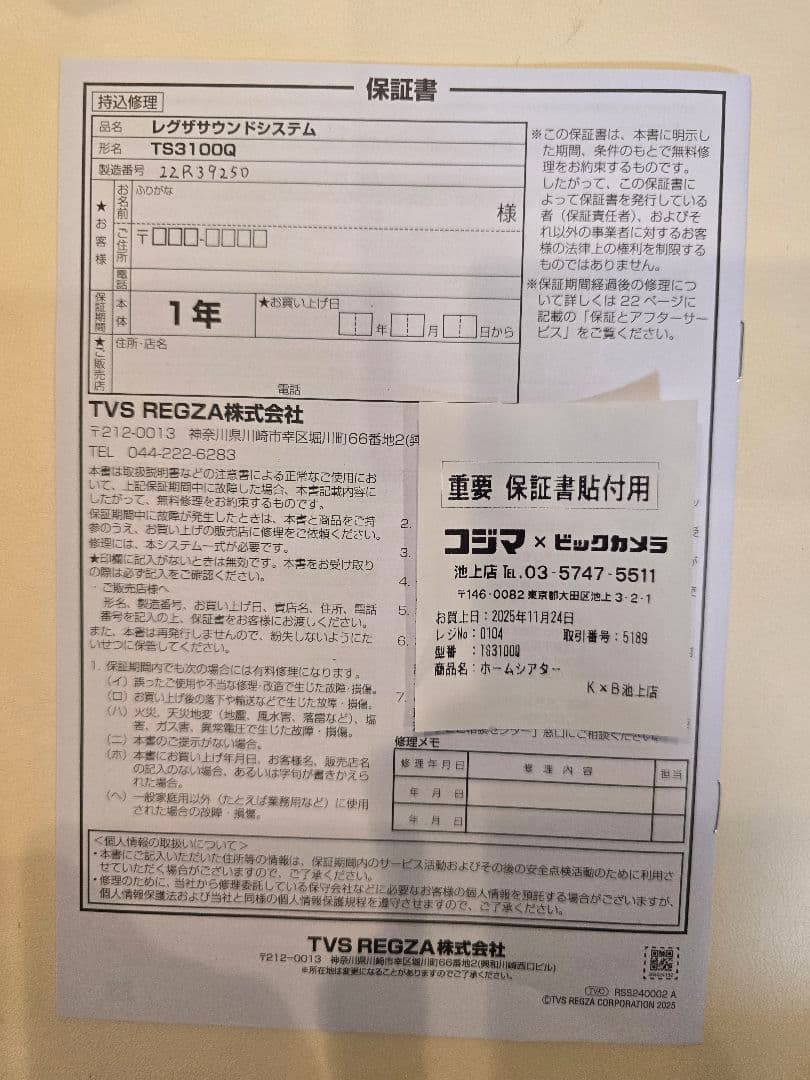 保証書
持込修理
品名 レグザサウンドシステム
形名 TS3100Q
製造番号 22R39250
★お客様
お名前
ふりがな
様
ご住所
〒□□□-□□□□
電話
保証期間
本体
1年
★お買い上げ日
年 月 日から
★ご販売店
住所・店名
電話
※この保証書は、本書に明示し
た期間、条件のもとで無料修
理をお約束するものです。
したがって、この保証書に
よって保証書を発行している
者（保証責任者）、およびそ
れ以外の事業者に対するお客
様の法律上の権利を制限する
ものではありません。
※保証期間経過後の修理につ
いて詳しくは 22 ページに
記載の「保証とアフターサー
ビス」をご覧ください。
TVS REGZA株式会社
〒212-0013 神奈川県川崎市幸区堀川町66番地2(興
TEL 044-222-6283
本書は取扱説明書などの注意書による正常なご使用にお
いて、上記保証期間中に故障した場合、本書記載内容に
したがって、無料修理をお約束するものです。
保証期間中に故障が発生したときは、本書と商品をご持
参のうえ、お買い上げの販売店に修理をご依頼ください。
修理には、本システム一式が必要です。
★印欄に記入がないときは無効です。本書をお受け取り
の際は必ず記入をご確認ください。
ご販売店様へ
形名、製造番号、お買い上げ日、貴店名、住所、電話
番号を記入の上、保証書をお客様にお渡しください。
また、本書は再発行しませんので、紛失しないようにた
いせつに保管してください。
1. 保証期間内でも次の場合には有料修理になります。
（イ）誤ったご使用や不当な修理・改造で生じた故障・損傷。
（ロ）お買い上げ後の落下や輸送などで生じた故障・損傷。
（ハ）火災、天災地変（地震、風水害、落雷など）、塩
害、ガス害、異常電圧で生じた故障・損傷。
（ニ）本書のご提示がない場合。
（ホ）本書にお買い上げ年月日、お客様名、販売店名
の記入のない場合、あるいは字句が書きかえら
れた場合。
（ヘ）一般家庭用以外（たとえば業務用など）に使用
された場合の故障・損傷。
2.
3.
4.
5.
6.
7.
重要 保証書貼付用
コジマ×ビックカメラ
池上店 TEL.03-5747-5511
〒146-0082 東京都大田区池上 3-2-1
お買上日：2025年11月24日
レジNo：0104 取引番号：5189
型番 ：TS3100Q
商品名：ホームシアター
K×B池上店
窓口にご相談ください。
修理メモ
修理年月日 修理内容 担当
年 月 日
年 月 日
＜個人情報の取扱いについて＞
・本書にご記入いただいた住所等の情報は、保証期間内のサービス活動およびその後の安全点検活動のために利用さ
せていただく場合がございますので、ご了承ください。
・修理のために、当社から修理委託している保守会社などに必要なお客様の個人情報を預託する場合がございますが、
個人情報保護法および当社と同様の個人情報保護規程を遵守させますので、ご了承ください。
TVS REGZA株式会社
〒212-0013 神奈川県川崎市幸区堀川町66番地2(興和川崎西口ビル)
※所在地は変更になることがありますのでご了承ください。
TVC RSS240002 A
©TVS REGZA CORPORATION 2025